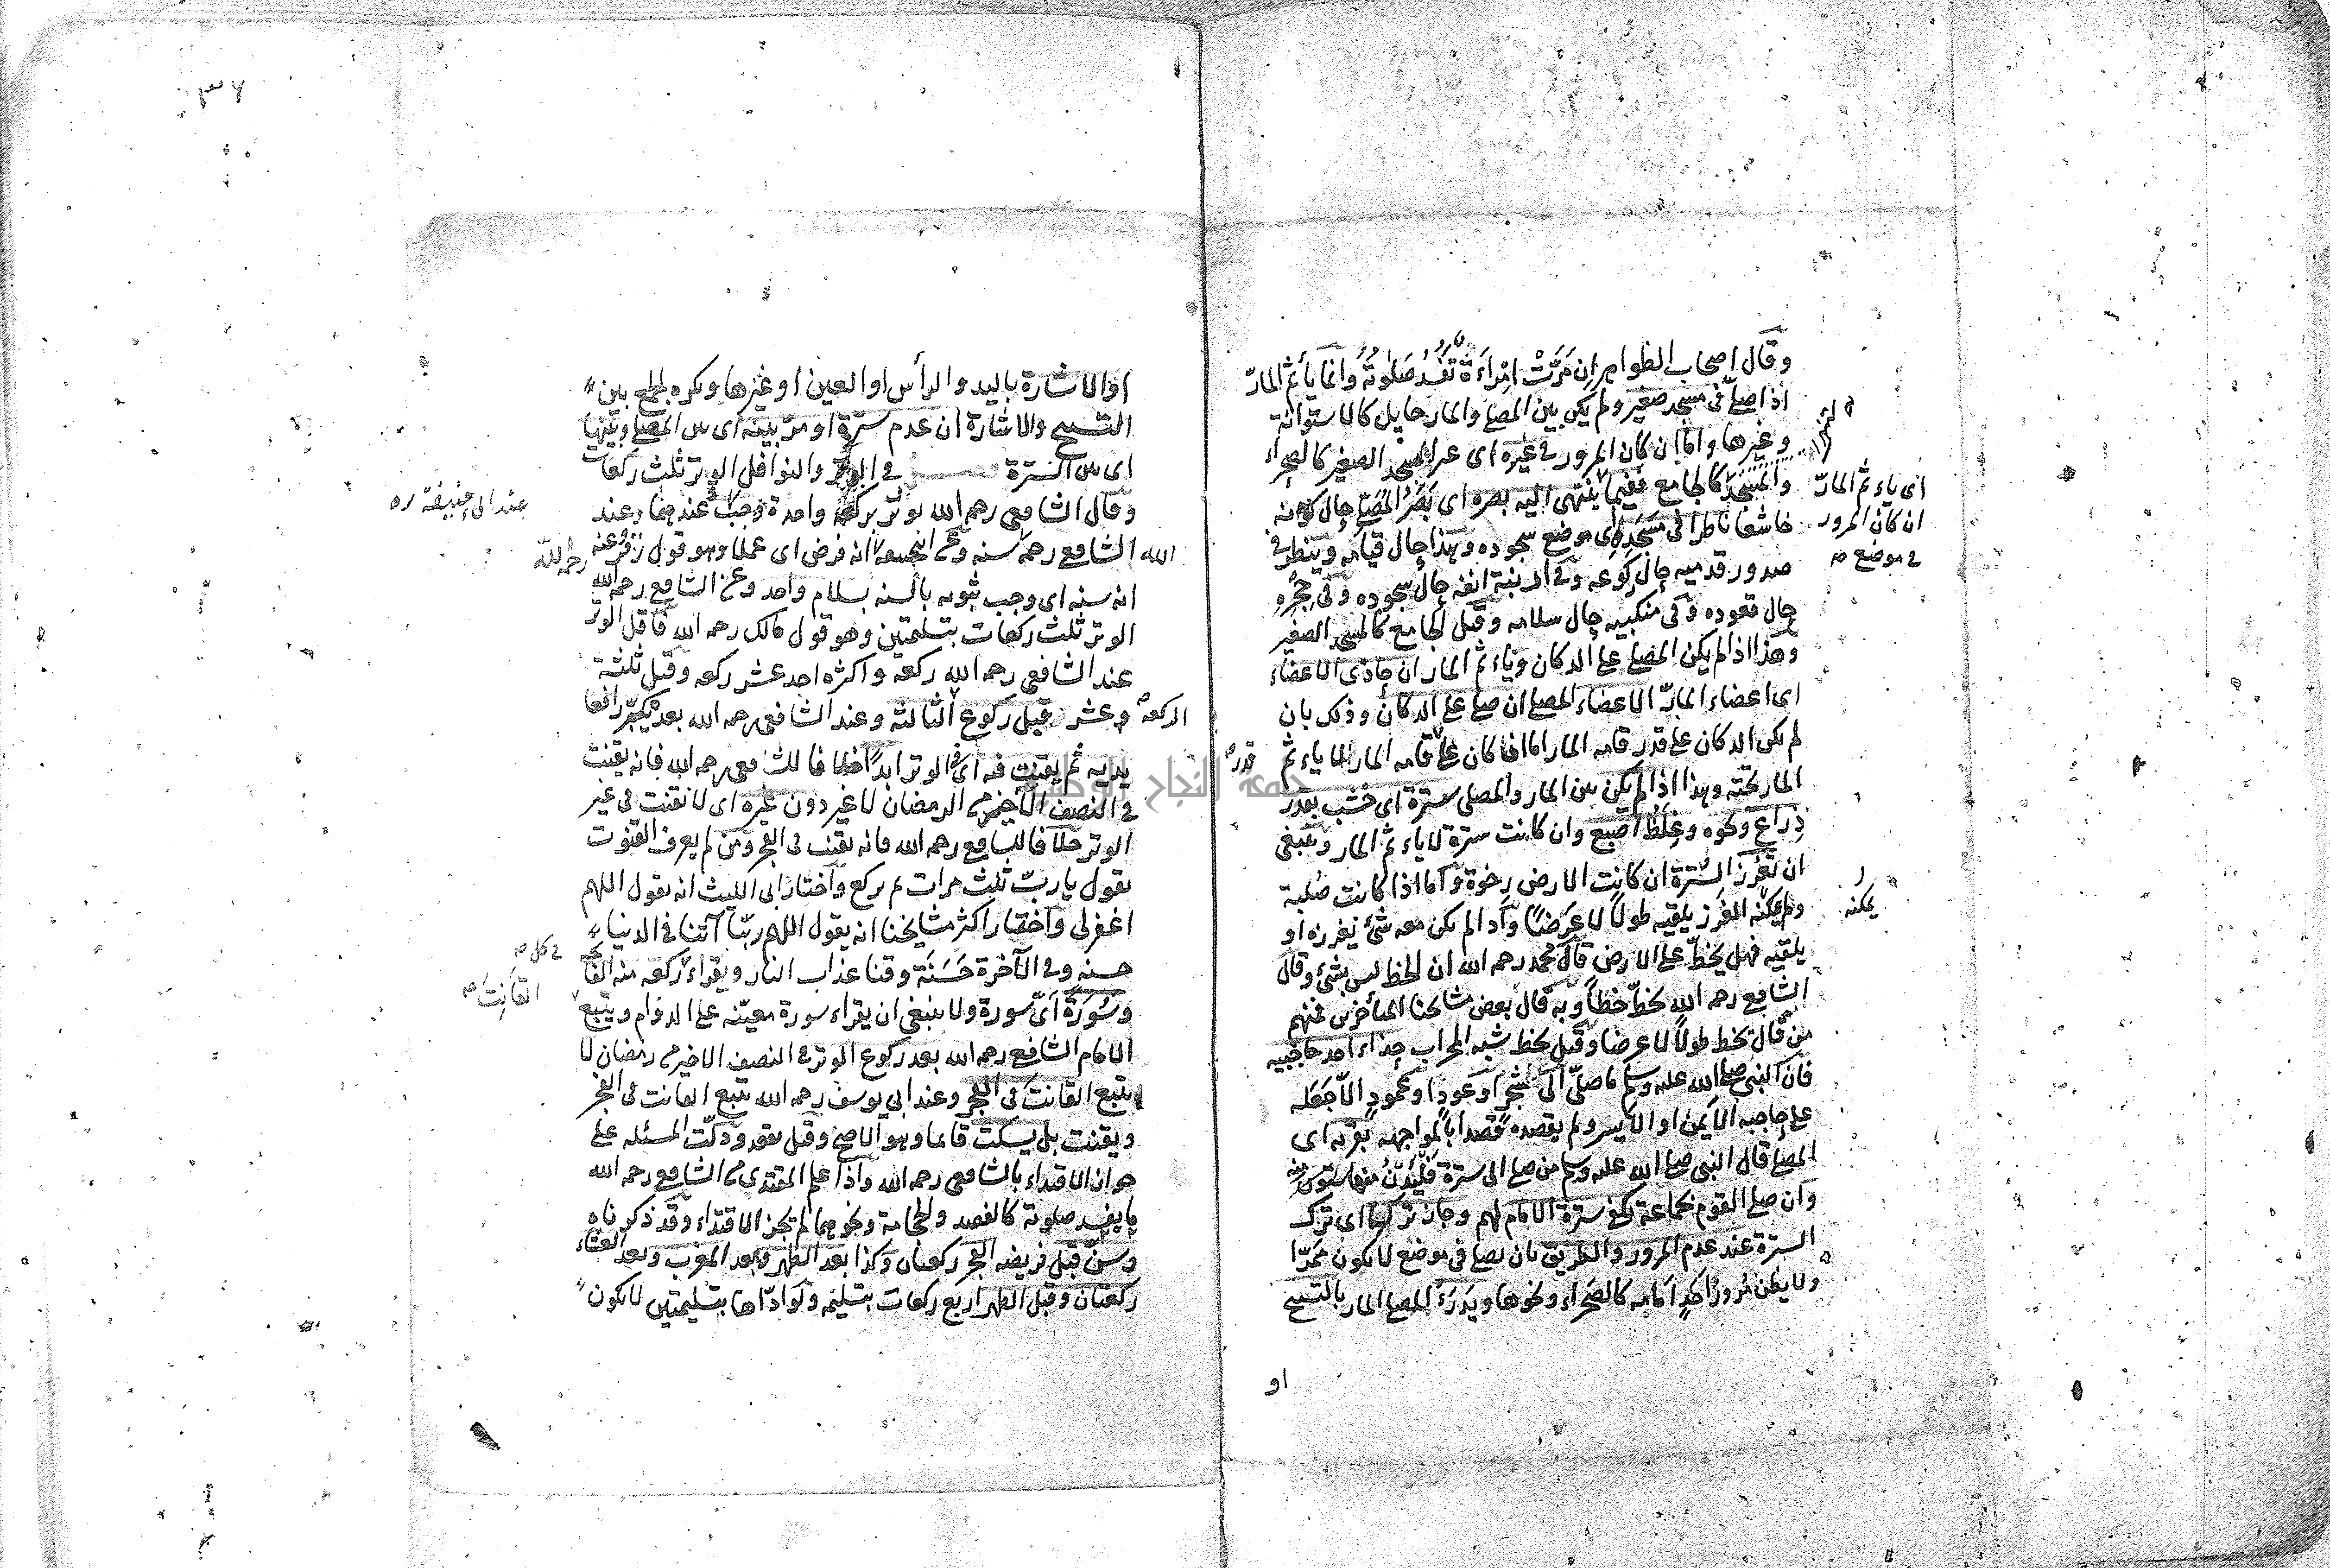 وقال اصحاب الظواهر ان مَرَّتْ اِمْرَاَة تَفْسُد صَلٰوتُهُ وانما يأثم المارّ
اذا صلّى فى مسجد صغير ولم يكن بين المصلى والمار حايل كالاستوانة
وغيرها واما ان كان المرور فى غيره اى غير المسجد الصغير كالصحراء
والمسجد كالجامع ففيما ينتهى اليه بصره اى بَصَرُ المُصَلّى حال كونه
خاشعا ناظرا فى مَسجَدِه اى موضع سجوده وهذا حال قيامه وينظر فى
صدور قدميه حال ركوعه وفى ارنبة انفه حال سجوده وفى حِجْرِه
حال قعوده وفى منكبيه حال سلامه وقيل الجامع كالمسجد الصغير
وهذا اذا لم يكن المصلى على الدكان وياءثم المار ان حاذى الاعضاء
اى اعضاء المارّ الاعضاء المصلى ان صلى على الدكان وذلك بان
لم يكن الدكان على قدر قامة المار اما اذا كان على قامة المار لا ياءثم
المار تحته وهذا اذا لم يكن بين المار والمصلى سترة اى خشب بقدر
ذراع ونحوه وغِلَظُ اصبع وان كانت سترة لا ياءثم المار وينبغى
ان تغرز السُترة ان كانت الارض رِخوة واما اذا كانت صُلبة
ولم يمكنه الغَرز يلقيه طولاً لا عَرضًا واذا لم يكن معه شئ يغرزه او
يلقيه فهل يخطّ على الارض قال محمد رحمه الله ان الخط ليس بشئ وقال
الشافعى رحمه الله يخطّ خطاً وبه قال بعض مشايخنا المتأخرين فمنهم
من قال يخط طولاً لا عرضا وقيل يخط شبه المحراب حِذاء احد حاجبيه
فان النبى صلى الله عليه وسلم ما صلّى الى شجر او عود او عمود الّا جعله
على حاجبه الايمن او الايسر ولم يقصده قصداً بالمواجهه بقربه اى
المصلى قال النبى صلى الله عليه وسلم من صلى الى سترة فَلْيَدْنُ منها
وان صلى القوم بجماعة يكفى سترة الامام لهم وجاز تركها اى ترك
السترة عند عدم المرور والطريق بان يصلى فى موضع لا يكون مَمَرّا
ولا يظن مُرورُ احَدٍ اَمَامه كالصَحراء ونحوها ويَدرَءُ المصلى المار بالتسبيح
او
اى ياءثم المارّ
ان كان المرور
فى موضع صح
يمكنه
قدر
٣٤
او الاشارة باليد والرأس او العين او غيرها وكره الجمع بين
التسبيح والاشارة ان عدم سترة او مرّ بينه اى بين المصلى وبينها
اى بين السترة فصل فى الوتر والنوافل الوتر ثلث ركعات
وقال الشافعى رحمه الله يوتر بركعة واحدة وجب عندهما وعند
الشافعى رحمه الله سنه وعن ابى حنيفة انه فرض اى عملا وهو قول زفر وعنه
انه سنه اى وجب ثبوته بالسنه بسلام واحد وعن الشافعى رحمه الله
الوتر ثلث ركعات بتسليمتين وهو قول مالك رحمه الله فاقل الوتر
عند الشافعى رحمه الله ركعة واكثره احد عشر ركعه وقيل ثلثة
وعشر قبل ركوع الثالثة وعند الشافعى رحمه الله بعده يكبّر رافعا
يديه ثم يقنت فيه اى فى الوتر ابداً خلافا للشافعى رحمه الله فانه يقنت
فى النصف الآخر من الرمضان لا غير دون غيره اى لا يقنت فى غير
الوتر خلافا للشافعى رحمه الله فانه يقنت فى الفجر ومن لم يعرف القنوت
يقول يا ربّ ثلث مرات ثم يركع واختار ابى الليث انه يقول اللهم
اغفر لى واختار اكثر مشايخنا انه يقول اللهم ربّنا آتنا فى الدنيا
حسنه وفى الآخرة حَسَنَة وقنا عذاب النار ويقراء ركعه منه الفاتحه
وسُورَةً اىّ سورة ولا ينبغى ان يقراء سورة معيّنه على الدوام ويتبع
الامام الشافعى رحمه الله بعد ركوع الوتر فى النصف الاخير من رمضان لا
يتبع القانت فى الفجر وعند ابى يوسف رحمه الله يتبع القانت فى الفجر
ويقنت بل يسكت قائما وهو الاصح وقيل يقعد ودلّت المسئله على
جواز الاقتداء بالشافعى رحمه الله واذا علم المقتدى من الشافعى رحمه الله
ما يفسد صلوته كالفصد والحجامة ونحوهما لم يجز الاقتداء وقد ذكرناه
وسنّ قبل فريضه الفجر ركعتان وكذا بعد الظهر وبعد المغرب وبعد العشاء
ركعتان وقبل الظهر اربع ركعات بتسليمه ولو ادّاها بتسليمتين لا يكون
عند ابى حنيفة ره
رحمه الله
الركعة
فى كل صح
القانِتَ صح
جامعة النجاح الوطنية